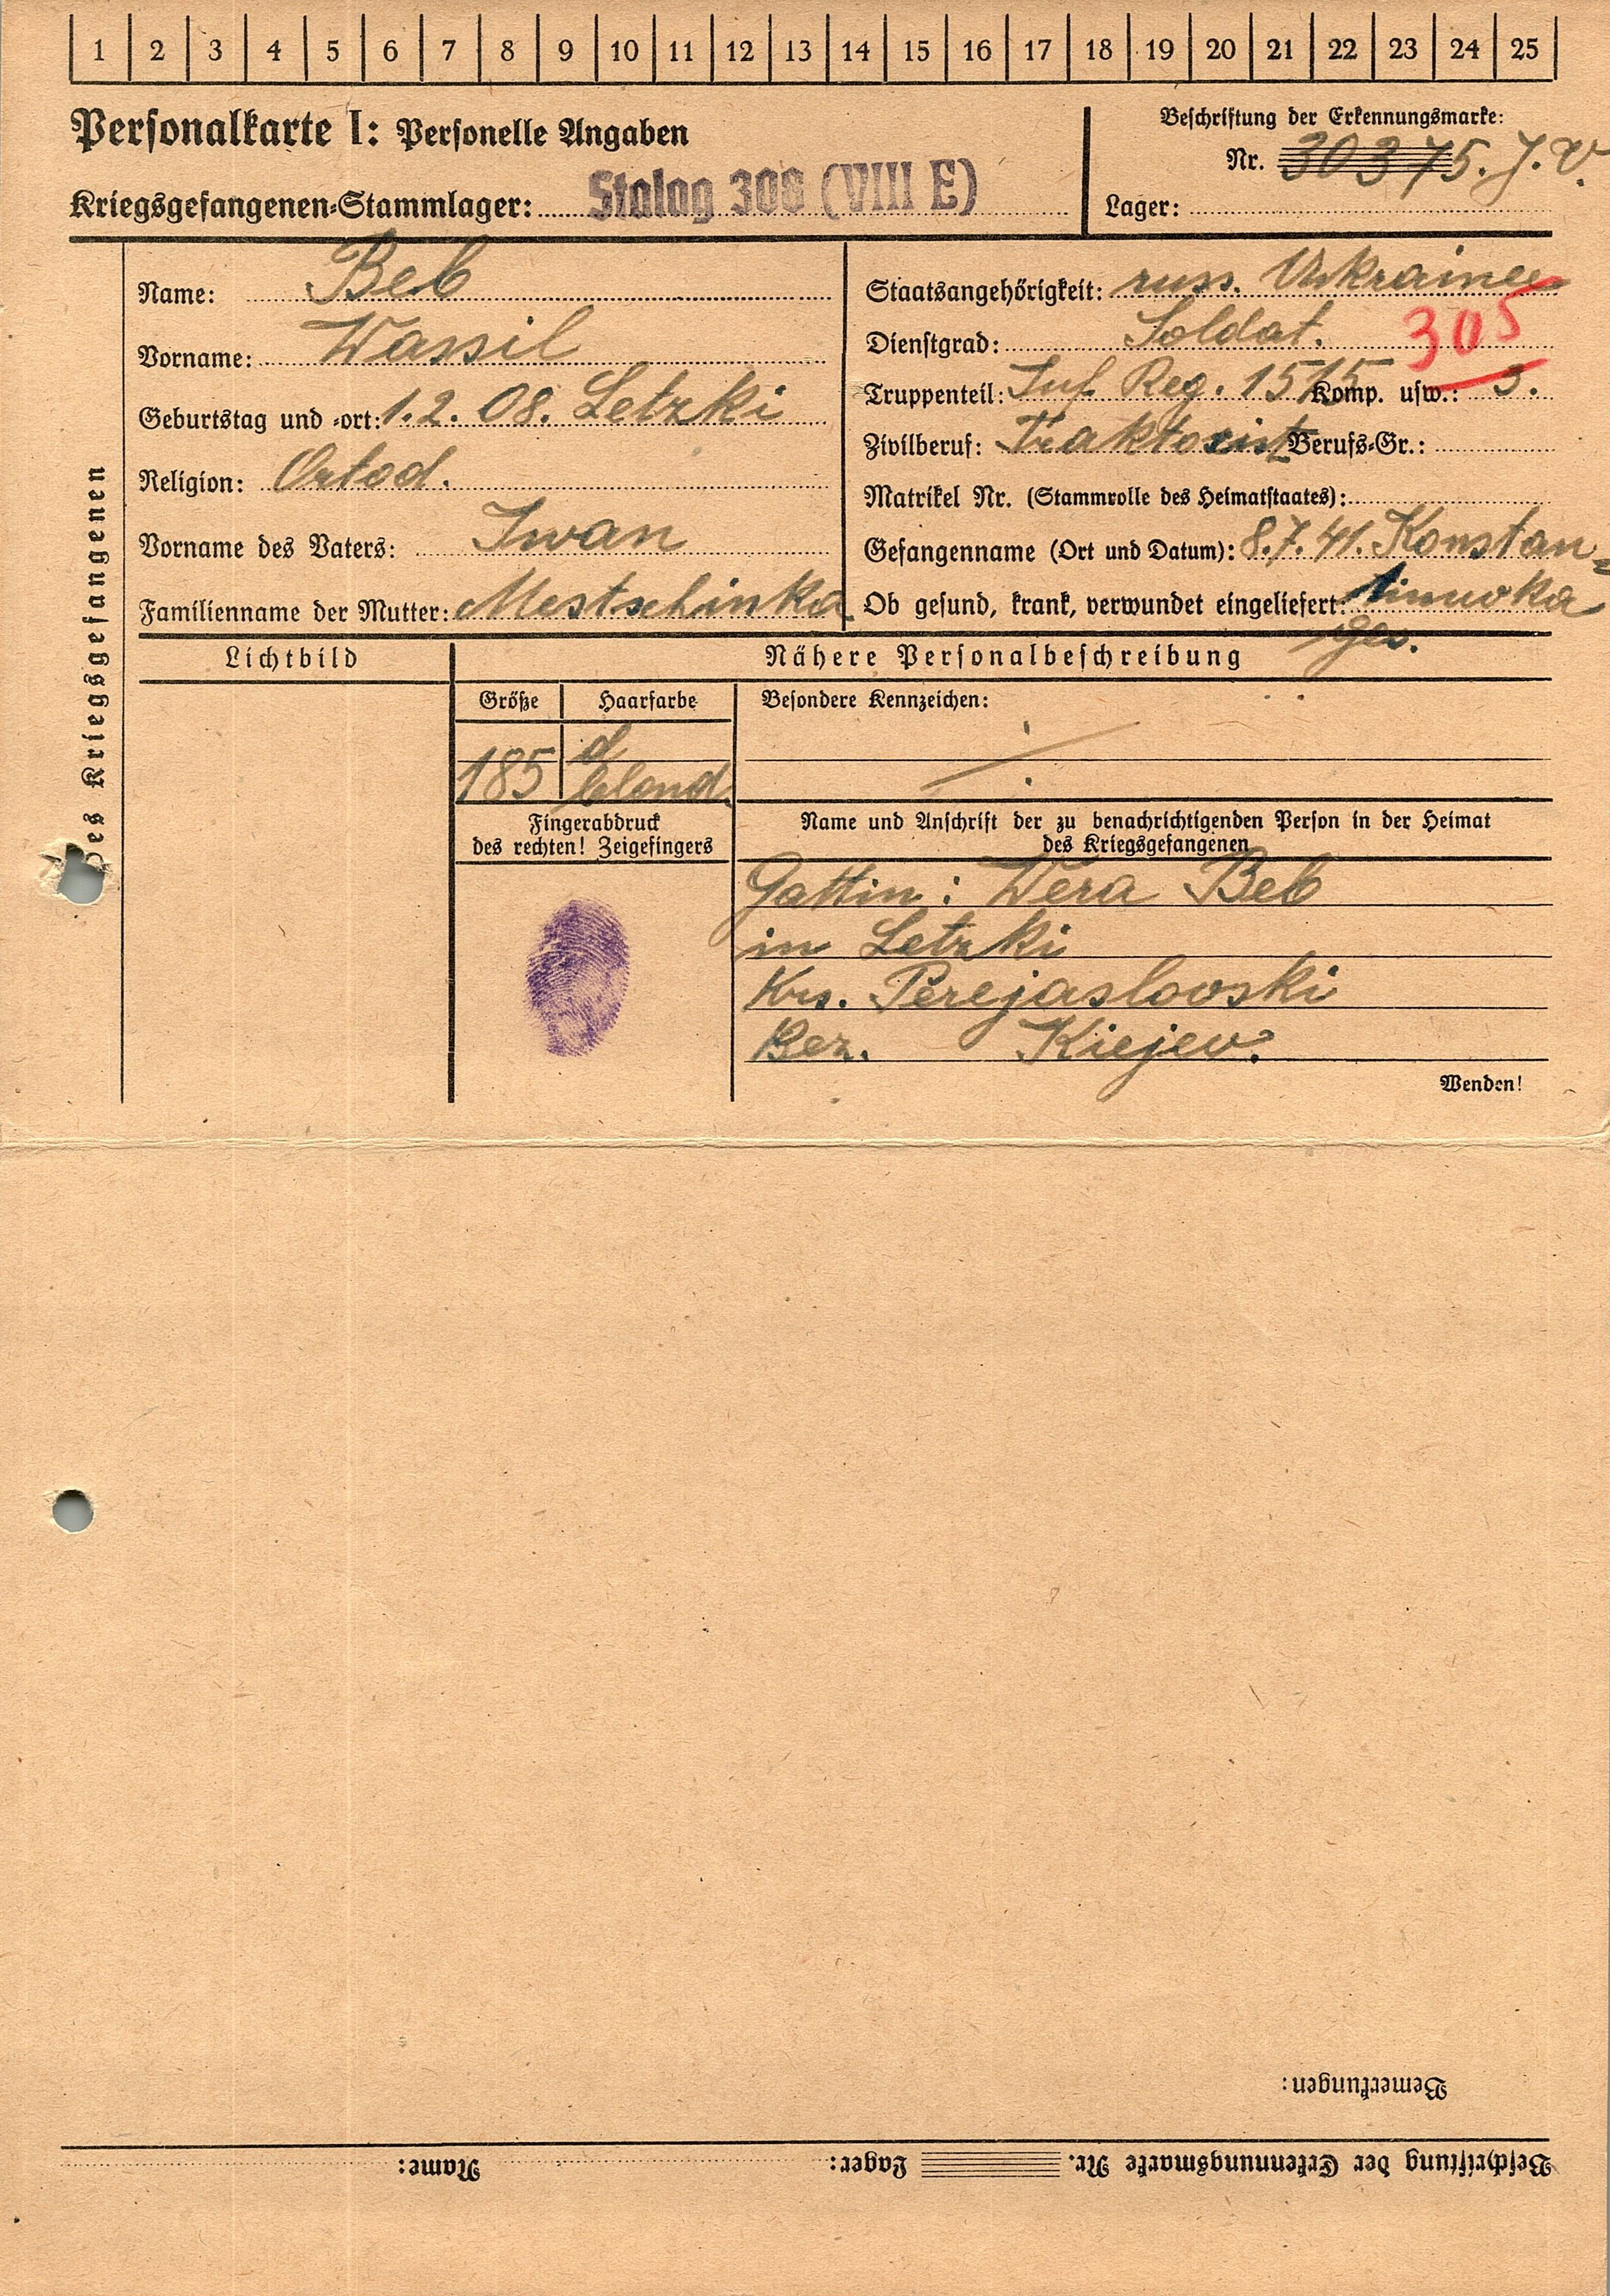 1 2 3 4 5 6 7 8 9 10 11 12 13 14 15 16 17 18 19 20 21 22 23 24 25
Personalkarte I: Personelle Angaben
Beschriftung der Erkennungsmarke:
Nr. 30375.
Kriegsgefangenen-Stammlager: Stalag 308 (VIII E)
Lager:
des Kriegsgefangenen
Name: Beb
Vorname: Wassil
Geburtstag und -ort: 1.2.08. Letzki
Religion: Ortod.
Vorname des Vaters: Iwan
Familienname der Mutter: Mestschinka
Staatsangehörigkeit: russ. Ukrainer
Dienstgrad: Soldat. 305
Truppenteil: Inf. Reg. 1515 Komp. usw.: 3.
Zivilberuf: Traktorist Berufs-Gr.:
Matrikel Nr. (Stammrolle des Heimatstaates):
Gefangenname (Ort und Datum): 8.7.41. Konstan=
Ob gesund, krank, verwundet eingeliefert: tinowka
ges.
Lichtbild
Nähere Personalbeschreibung
Größe Haarfarbe Besondere Kennzeichen:
185 d
blond.
Fingerabdruck
des rechten! Zeigefingers
Name und Anschrift der zu benachrichtigenden Person in der Heimat
des Kriegsgefangenen
Gattin: Wera Beb
in Letzki
Krs. Perejaslovski
Bez. Kiejew.
Wenden!
Bemerkungen:
Beschriftung der Erkennungsmarke Nr. Lager: Name: